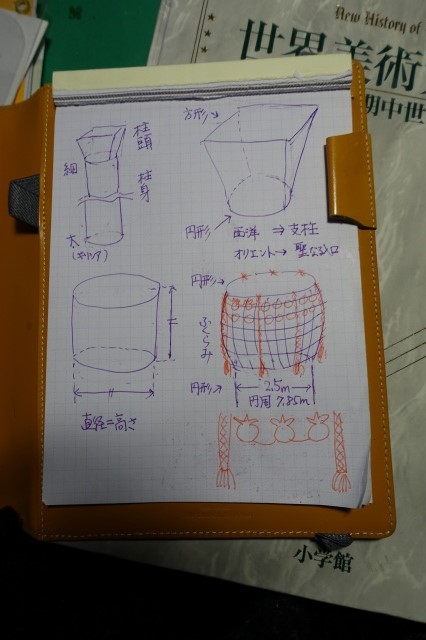 New History of
世界美術
期中世
柱頭
細
柱身
太
(ギリシア)
方形→
円形
西洋 ⇒ 支柱
オリエント→ 聖なる入口
円形→
ふくらみ
円形→
2.5m
円周 7.85m
直径=高さ
小学館